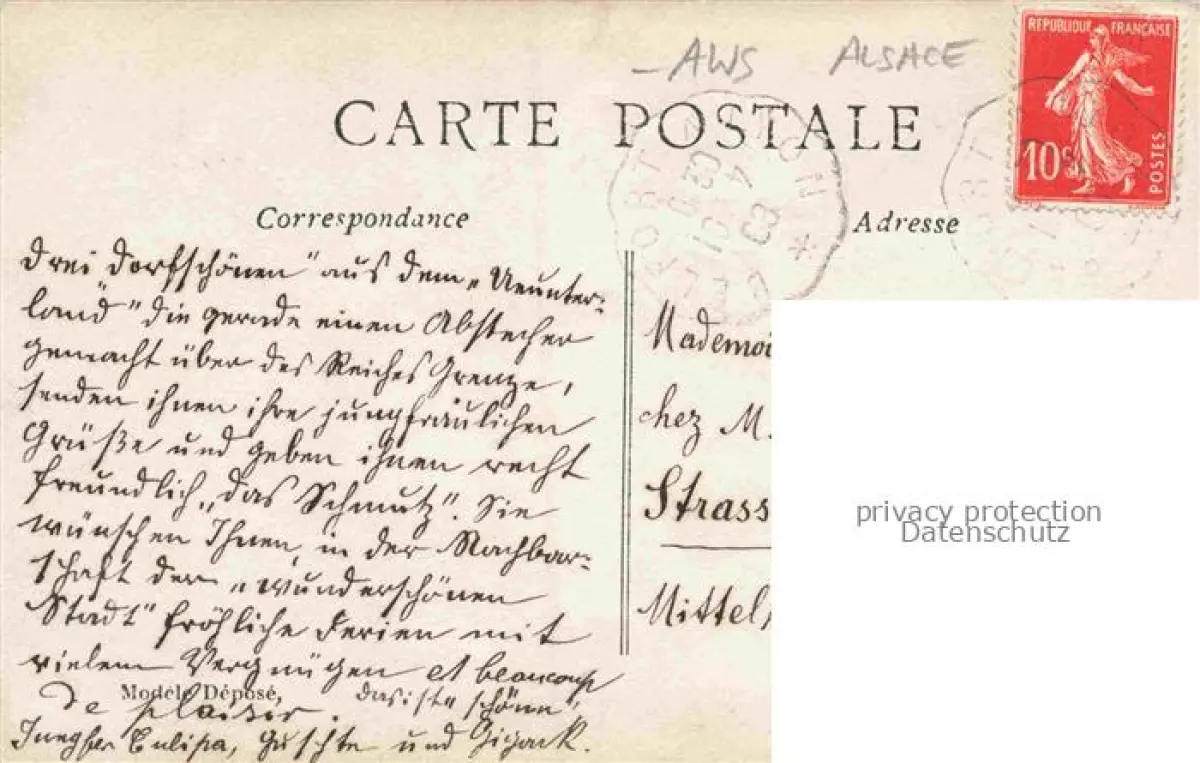 AWS ALSACE
REPUBLIQUE FRANÇAISE
10c POSTES
CARTE POSTALE
Correspondance
Adresse
drei Dorfschönen" aus dem „Unter-
land" die gerade einen Abstecher
gemacht über des Reiches Grenze,
senden ihnen ihre jungfräulichen
Grüße und geben ihnen recht
freundlich „das Schmutz". Sie
wünschen Ihnen, in der Nachbar-
schaft der „wunderschönen
Stadt" fröhliche Ferien mit
vielem Vergnügen et beaucoup
de plaisir. das ist schöne"
Modèle Déposé,
Jungfer und
Mademoi
chez M.
Strass
Mittel
BELFORT
privacy protection
Datenschutz